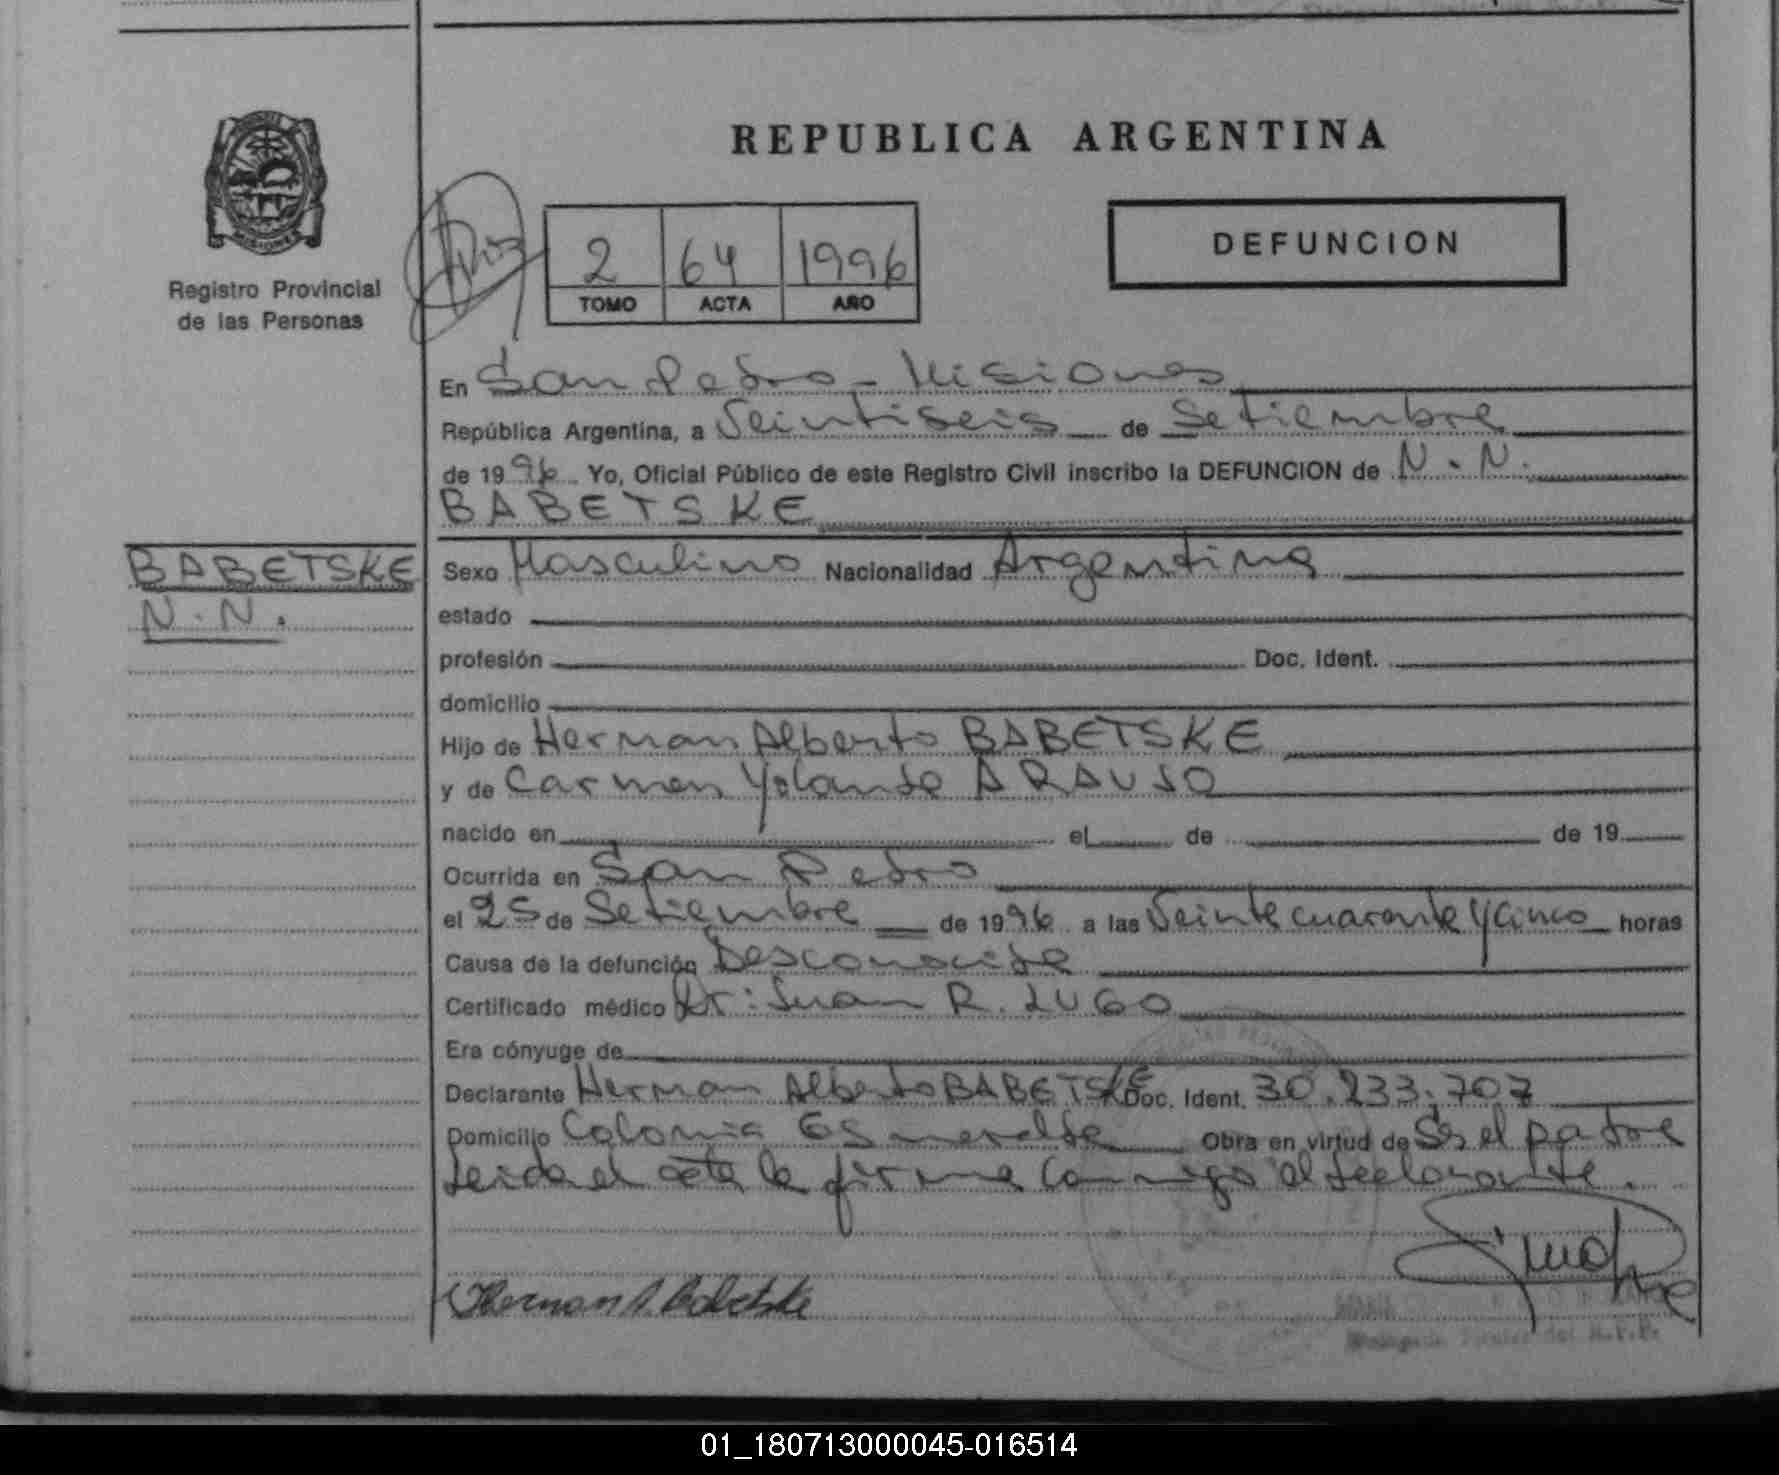 REPUBLICA ARGENTINA
MISIONES
Registro Provincial
de las Personas
2 64 1996
TOMO ACTA AÑO
DEFUNCION
En San Pedro - Misiones
República Argentina, a Veintiseis de Setiembre
de 1996 Yo, Oficial Público de este Registro Civil inscribo la DEFUNCION de N.N.
BABETSKE
BABETSKE
N.N.
Sexo Masculino Nacionalidad Argentina
estado
profesión Doc. Ident.
domicilio
Hijo de Herman Alberto BABETSKE
y de Carmen Yolanda ARAUJO
nacido en el de de 19
Ocurrida en San Pedro
el 25 de Setiembre de 1996 a las Veinte cuarenta y cinco horas
Causa de la defunción Desconocida
Certificado médico Dr: Juan R. LUGO
Era cónyuge de
Declarante Herman Alberto BABETSKE Doc. Ident. 30.233.707
Domicilio Colonia Esmeralda Obra en virtud de Ser el padre
Leida el acta la firma conmigo el declarante.
Herman A. Babetske
del R.P.P.
01_180713000045-016514